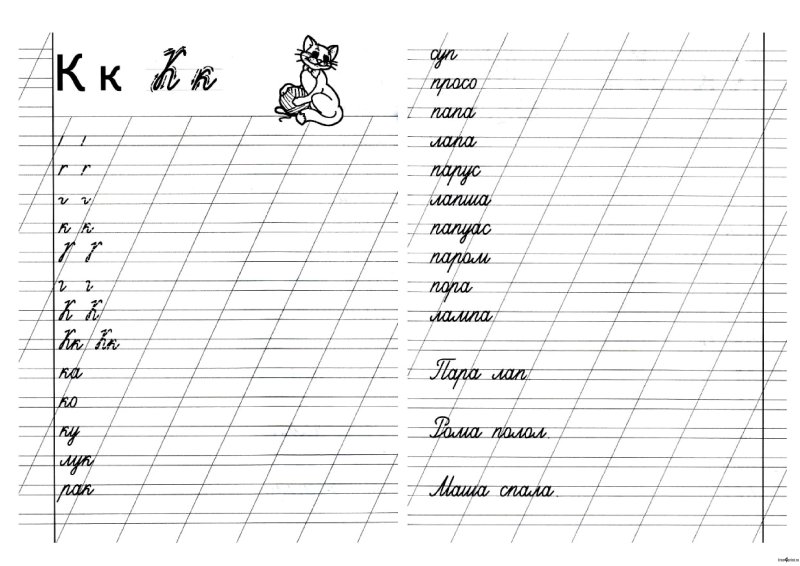 К к К к
к к
К К
Кк Кк
ка
ко
ку
лук
рак
суп
просо
папа
лапа
парус
лапша
папуас
паром
пора
лампа
Пара лап.
Рома полол.
Маша спала.